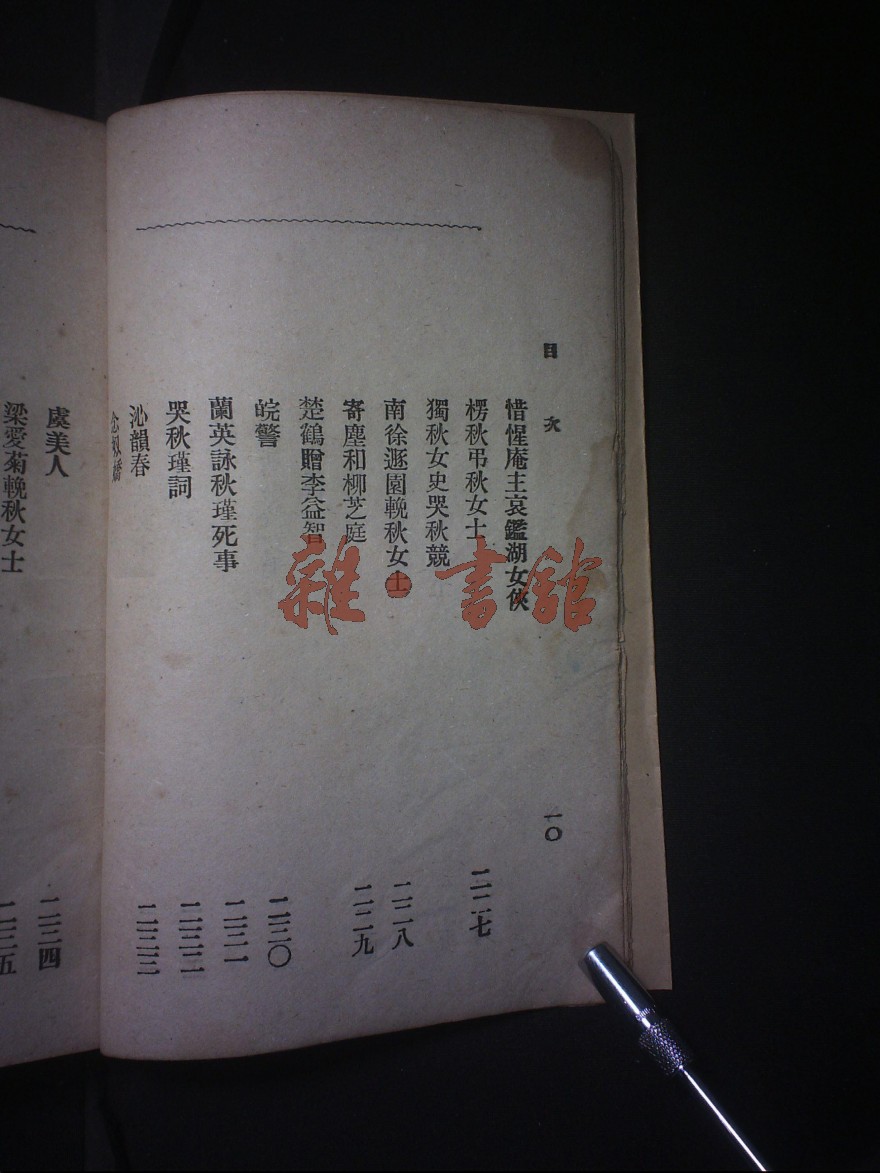 目次 一〇
惜惺庵主哀鑑湖女俠
楞秋弔秋女士 二二七
獨秋女史哭秋競
南徐遯園輓秋女士 二二八
寄塵和柳芝庭 二二九
楚鶴贈李益智
皖警 二三〇
蘭英詠秋瑾死事 二三一
哭秋瑾詞 二三二
沁韻春 二三三
念奴嬌
虞美人 二三四
梁愛菊輓秋女士 二三五
雜書館